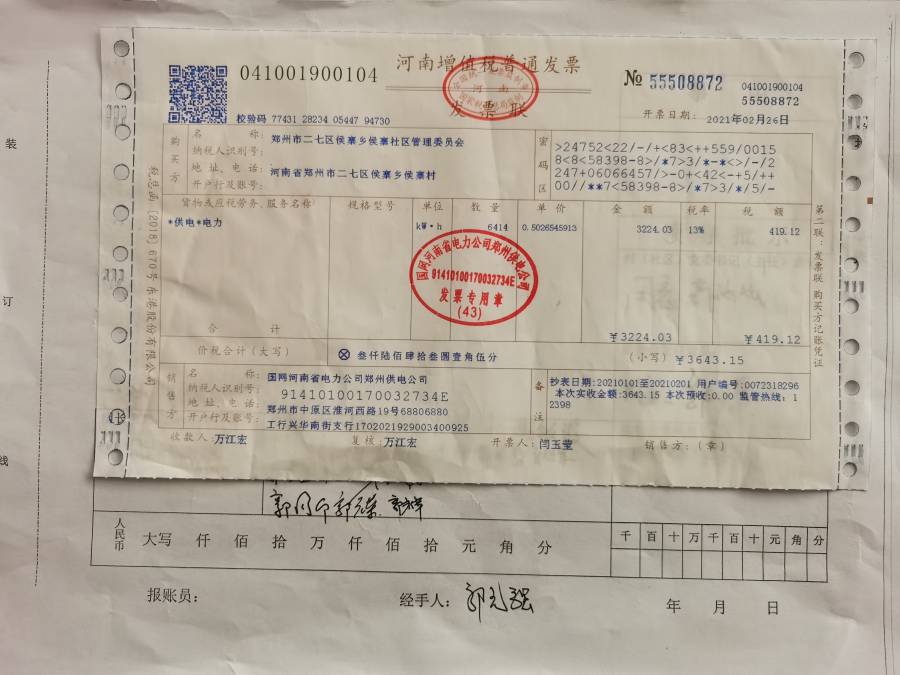 装
订
线
河南增值税普通发票
发票联
041001900104
№ 55508872
041001900104
55508872
校验码 77431 28234 05447 94730
开票日期: 2021年02月26日
税总函〔2018〕670号东港股份有限公司
购买方
名称: 郑州市二七区侯寨乡侯寨社区管理委员会
纳税人识别号:
地址、电话: 河南省郑州市二七区侯寨乡侯寨村
开户行及账号:
密码区
>24752<22/-/+<83<++559/0015
8<8<58398-8>/*7>3/*-*<>/-/2
247+06066457/>-0+<42<-+5/++
00//**7<58398-8>/*7>3/*/5/-
货物或应税劳务、服务名称 规格型号 单位 数量 单价 金额 税率 税额
*供电*电力 kW·h 6414 0.5026545913 3224.03 13% 419.12
国网河南省电力公司郑州供电公司
91410100170032734E
发票专用章
(43)
合计 ¥3224.03 ¥419.12
价税合计(大写) ⊗ 叁仟陆佰肆拾叁圆壹角伍分 (小写) ¥3643.15
销售方
名称: 国网河南省电力公司郑州供电公司
纳税人识别号: 91410100170032734E
地址、电话: 郑州市中原区淮河西路19号68806880
开户行及账号: 工行兴华南街支行1702021929003400925
备注
抄表日期:20210101至20210201 用户编号:0072318296
本次实收金额:3643.15 本次预收:0.00 监管热线:1
2398
收款人:万江宏 复核:万江宏 开票人:闫玉莹 销售方:(章)
第二联:发票联 购买方记账凭证
人民币 大写 仟 佰 拾 万 仟 佰 拾 元 角 分
千 百 十 万 千 百 十 元 角 分
报账员: 经手人: 年 月 日